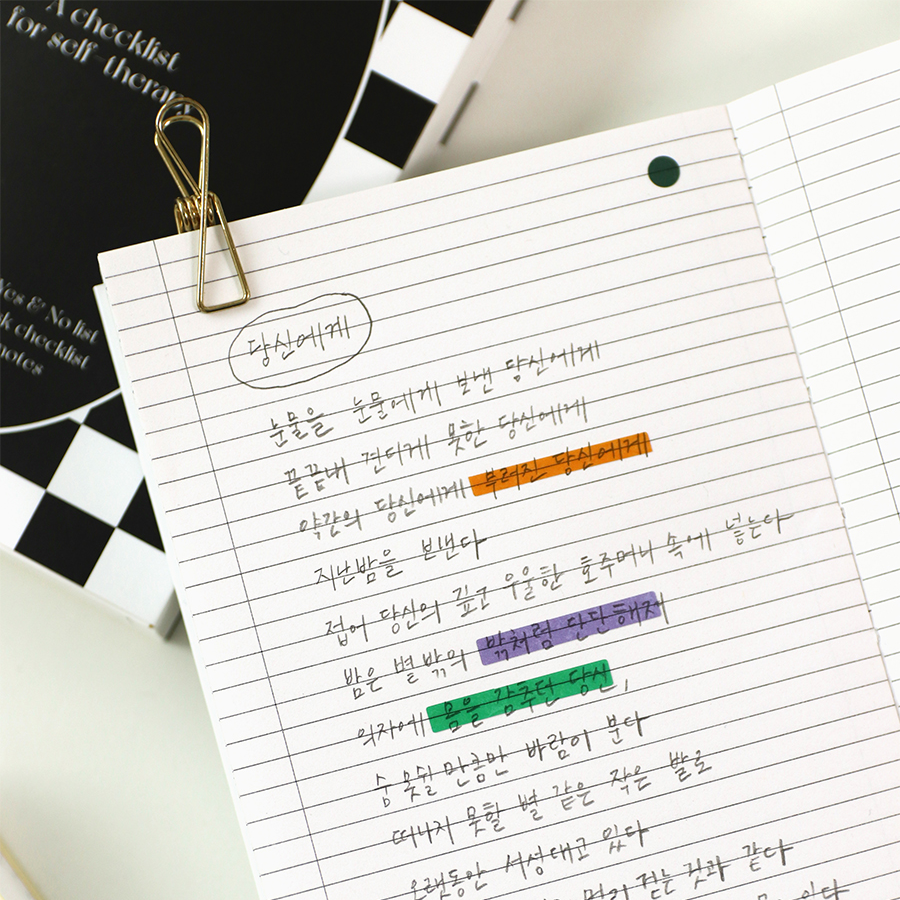 A checklist
for self-therapy
Yes & No list
checklist
notes
당신에게
눈물을 눈물에게 보낸 당신에게
끝끝내 견디게 못한 당신에게
약간의 당신에게 부러진 당신에게
지난밤을 보낸다
접어 당신의 깊고 우울한 호주머니 속에 넣는다
밤은 별 밖의 밖처럼 단단해져
의자에 몸을 감추던 당신,
숨 못쉴 만큼만 바람이 분다
떠나지 못할 별 같은 작은 발로
오랫동안 서성대고 있다
젖는 것과 같다
있다